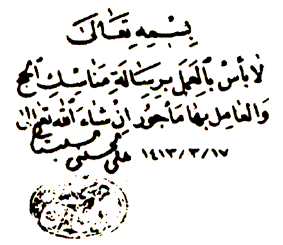 بسمه تعالى
لا بأس بالعمل برسالة مناسك الحج
والعامل بها مأجور ان شاء الله تعالى
١٤١٣/٣/١٧ علي